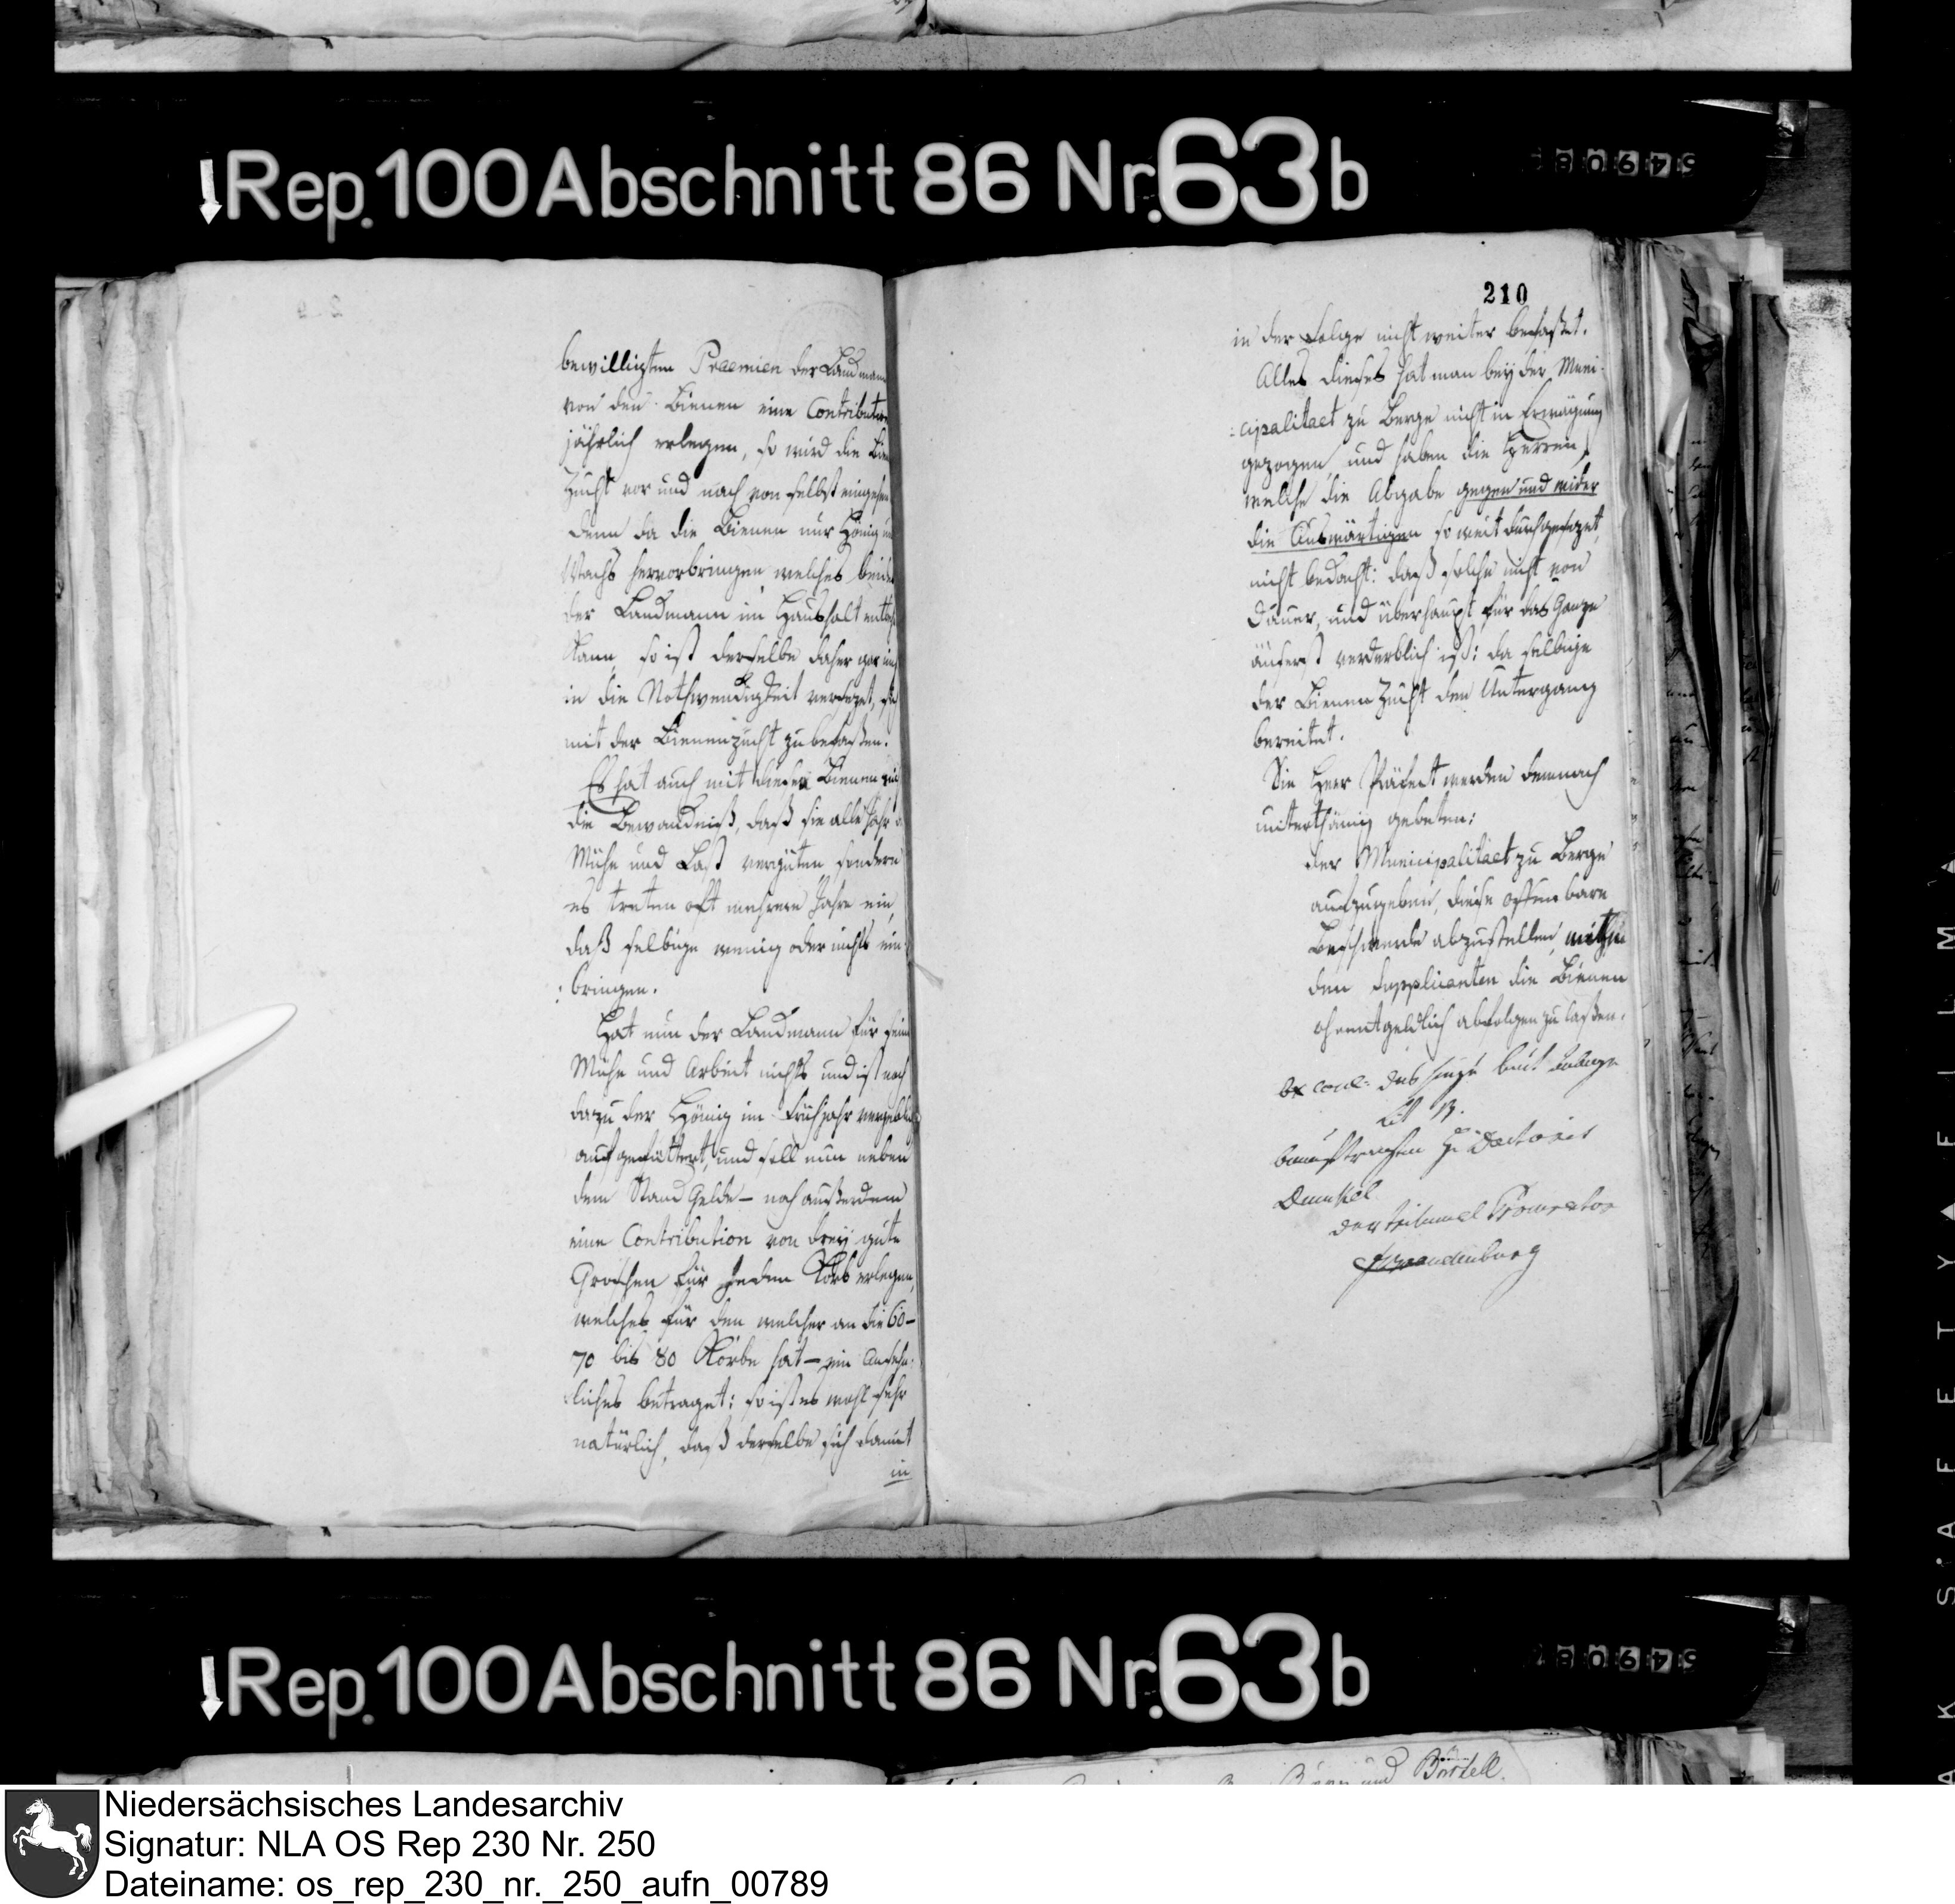 Rep. 100 Abschnitt 86 Nr. 63b
bewilligten Praemien der Landmann
von den Bienen eine Contribution
jährlich erlegen, so wird die Bie
Zucht vor und nach von selbst eingehen
denn da die Bienen nur Hönig und
Wachs hervorbringen welches beides
der Landmann im Haushalt
kann, so ist derselbe daher gar nicht
in die Nothwendigkeit versezet, sich
mit der Bienenzucht zu befaßen.
Es hat auch mit diesen Bienen
die Bewandniß, daß sie alle Jahr
Mühe und Last vergüten sondern
es treten oft mehrere Jahre ein,
daß selbige wenig oder nichts ein-
:bringen.
Hat nun der Landmann für seine
Mühe und Arbeit nichts und ist noch
dazu der Hönig im Frühjahr vergeblich
aufgefüttert, und soll nun neben
dem Stand Gelde – noch außerdem
eine Contribution von drey gute
Groschen für Jeden Korb erlegen,
welches für den welcher an die 60–
70 bis 80 Körbe hat – ein Ansehn:
liches betraget: so ist es wohl sehr
natürlich, daß derselbe sich damit
in
210
in der Folge nicht weiter befaßet.
Alles dieses hat man bey der Muni:
:cipalitaet zu Berge nicht in Erwägung
gezogen, und haben die Herren,
welche die Abgabe gegen und wider
die Auswärtigen so weit durchgesezet,
nicht bedacht: daß solche nicht von
Dauer, und überhaupt für das Ganze
äuserst verderblich ist: da selbige
der Bienen Zucht den Untergang
bereitet.
Sie Herr Präfect werden demnach
unterthänig gebeten:
der Municipalitaet zu Berge
aufzugeben, diese offenbare
Beschwerde abzustellen, mithin
den Supplicanten die Bienen
ohnentgeldlich abfolgen zu laßen.
Lit B.
Doctoris
der tribunal Procurator
Brandenburg
Rep. 100 Abschnitt 86 Nr. 63b
und Börstell
AK SAFETY▲FILM▲
Niedersächsisches Landesarchiv
Signatur: NLA OS Rep 230 Nr. 250
Dateiname: os_rep_230_nr._250_aufn_00789